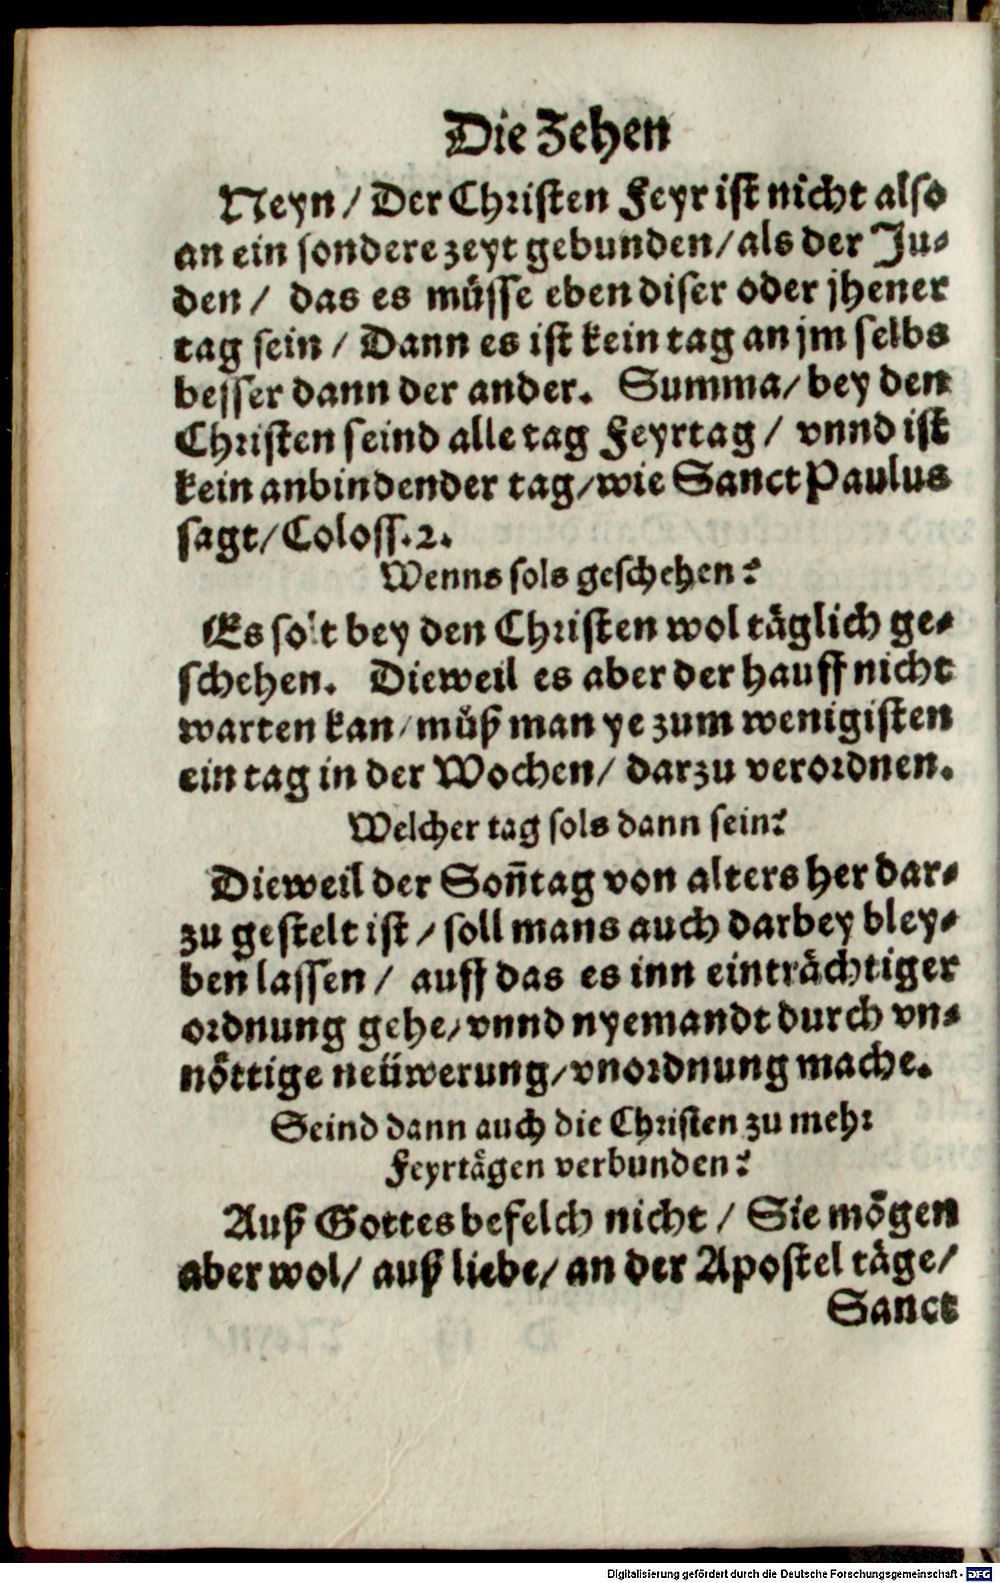 Die Zehen
Neyn / Der Christen Feyr ist nicht also
an ein sondere zeyt gebunden / als der Ju-
den / das es müsse eben diser oder jhener
tag sein / Dann es ist kein tag an jm selbs
besser dann der ander. Summa / bey den
Christen seind alle tag Feyrtag / vnnd ist
kein anbindender tag / wie Sanct Paulus
sagt / Coloss. 2.
Wenns sols geschehen?
Es solt bey den Christen wol täglich ge-
schehen. Dieweil es aber der hauff nicht
warten kan / můß man ye zum wenigisten
ein tag in der Wochen / darzu verordnen.
Welcher tag sols dann sein?
Dieweil der Son̄tag von alters her dar-
zu gestelt ist / soll mans auch darbey bley-
ben lassen / auff das es inn einträchtiger
ordnung gehe / vnnd nyemandt durch vn-
nöttige neüwerung / vnordnung mache.
Seind dann auch die Christen zu mehr
Feyrtägen verbunden?
Auß Gottes befelch nicht / Sie mögen
aber wol / auß liebe / an der Apostel täge /
Sanct
Digitalisierung gefördert durch die Deutsche Forschungsgemeinschaft - DFG